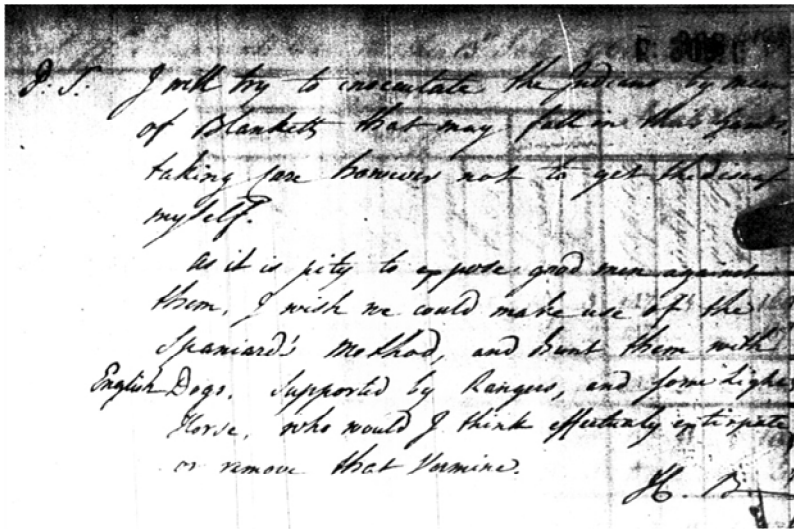 P. S. I will try to inocculate the Indians by means
of Blankets that may fall in their hands,
taking care however not to get the disease
myself.
As it is pity to oppose good men against
them, I wish we could make use of the
Spaniard's Method, and hunt them with
English Dogs. Supported by Rangers, and some Light
Horse, who would I think effectively extirpate
or remove that Vermine.
H. B.